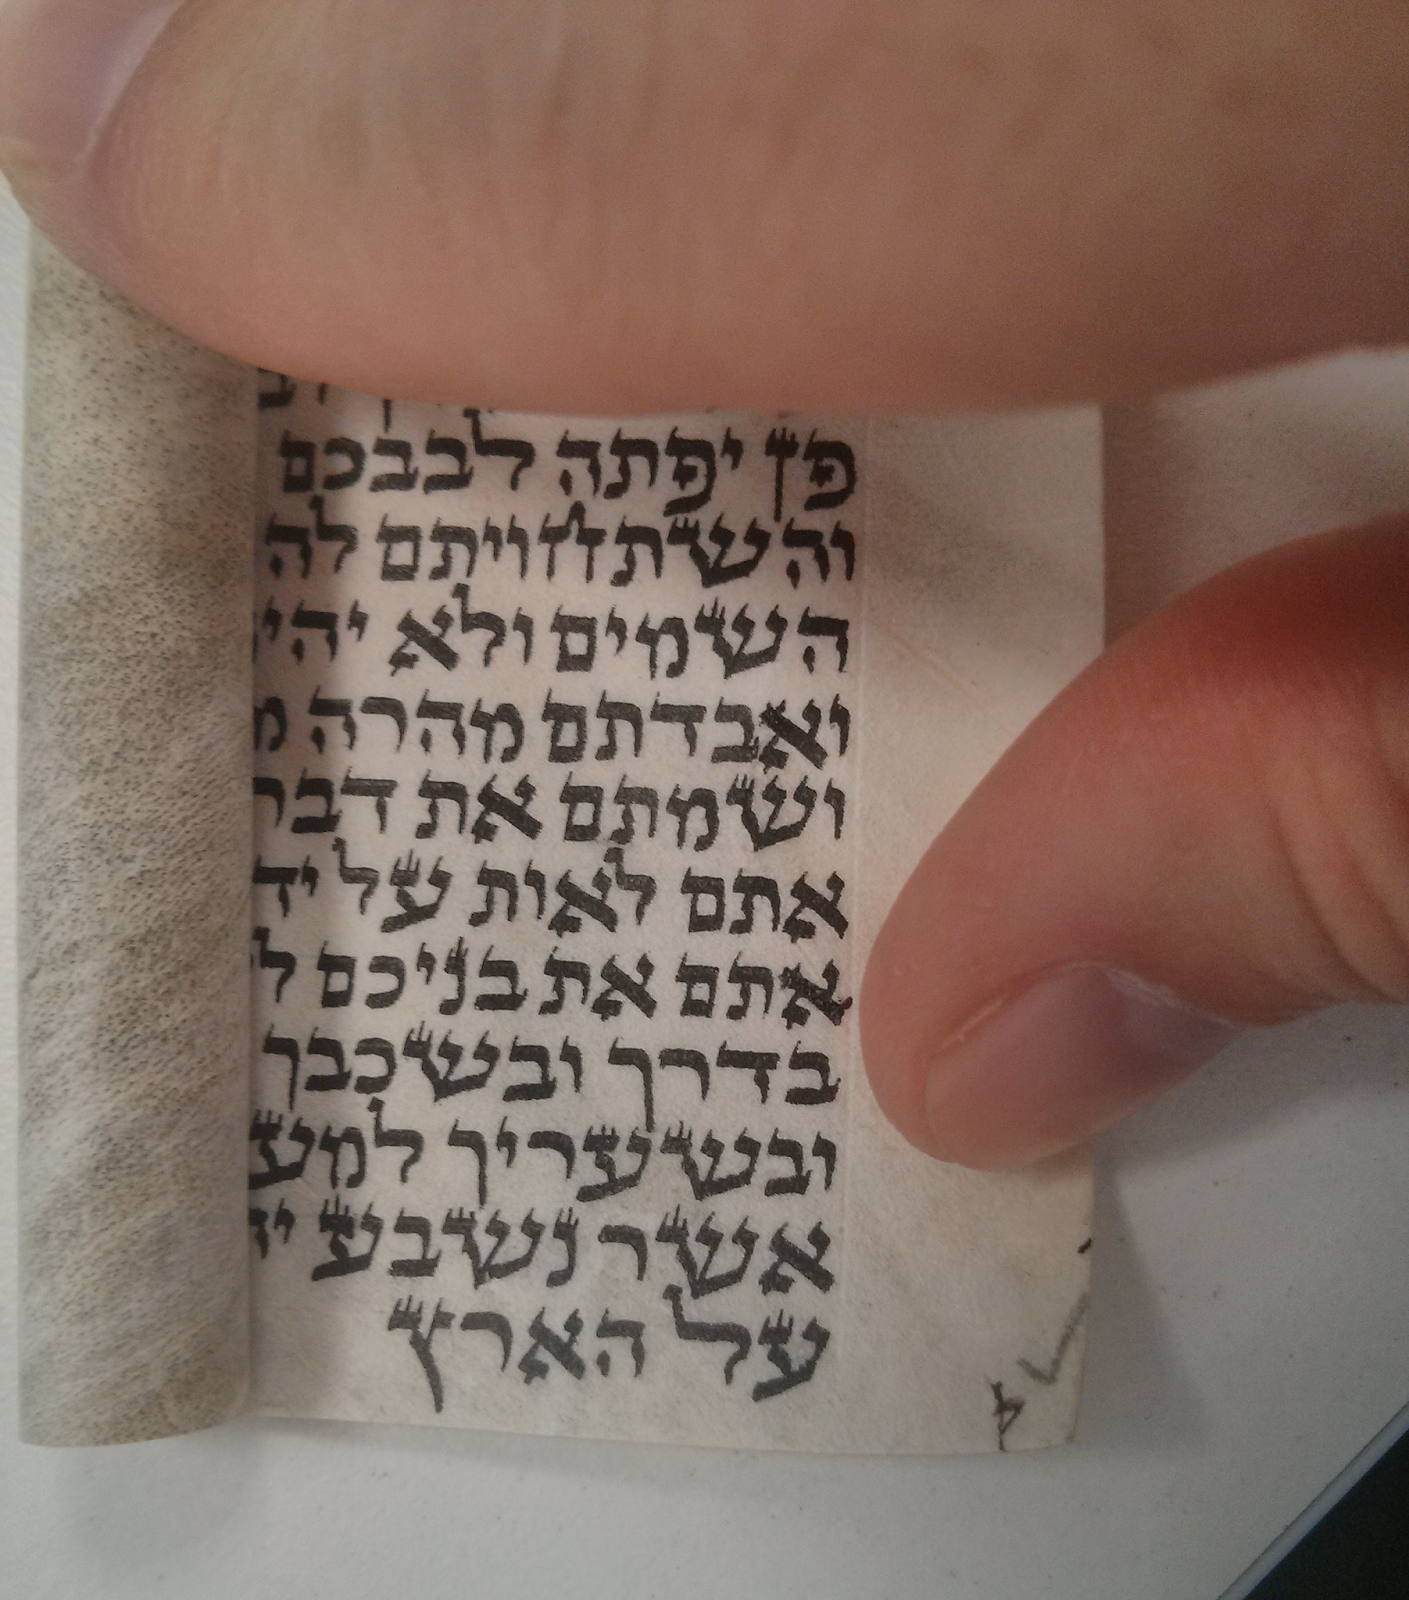 פן יפתה לבבכם
והשתחויתם לה
השמים ולא
ואבדתם מהרה
ושמתם את דבר
אתם לאות על יד
אתם את בניכם
בדרך ובשכבך
ובשעריך
אשר נשבע
על הארץ